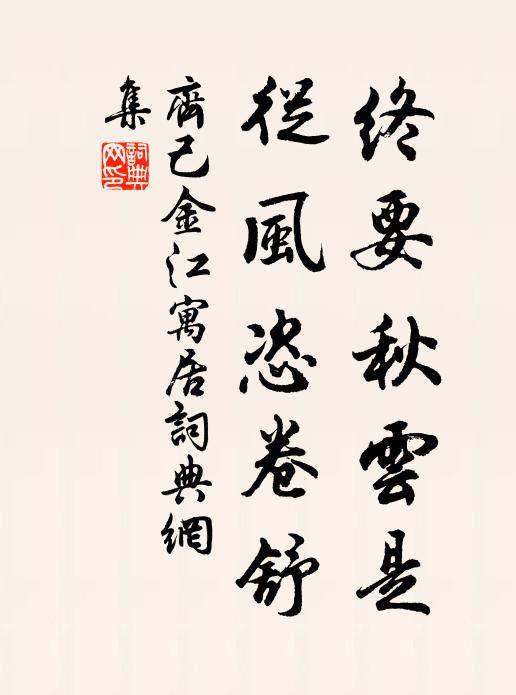 終要秋雲是
從風恣卷舒
齊己金江寓居詞典網
集
詞典網印